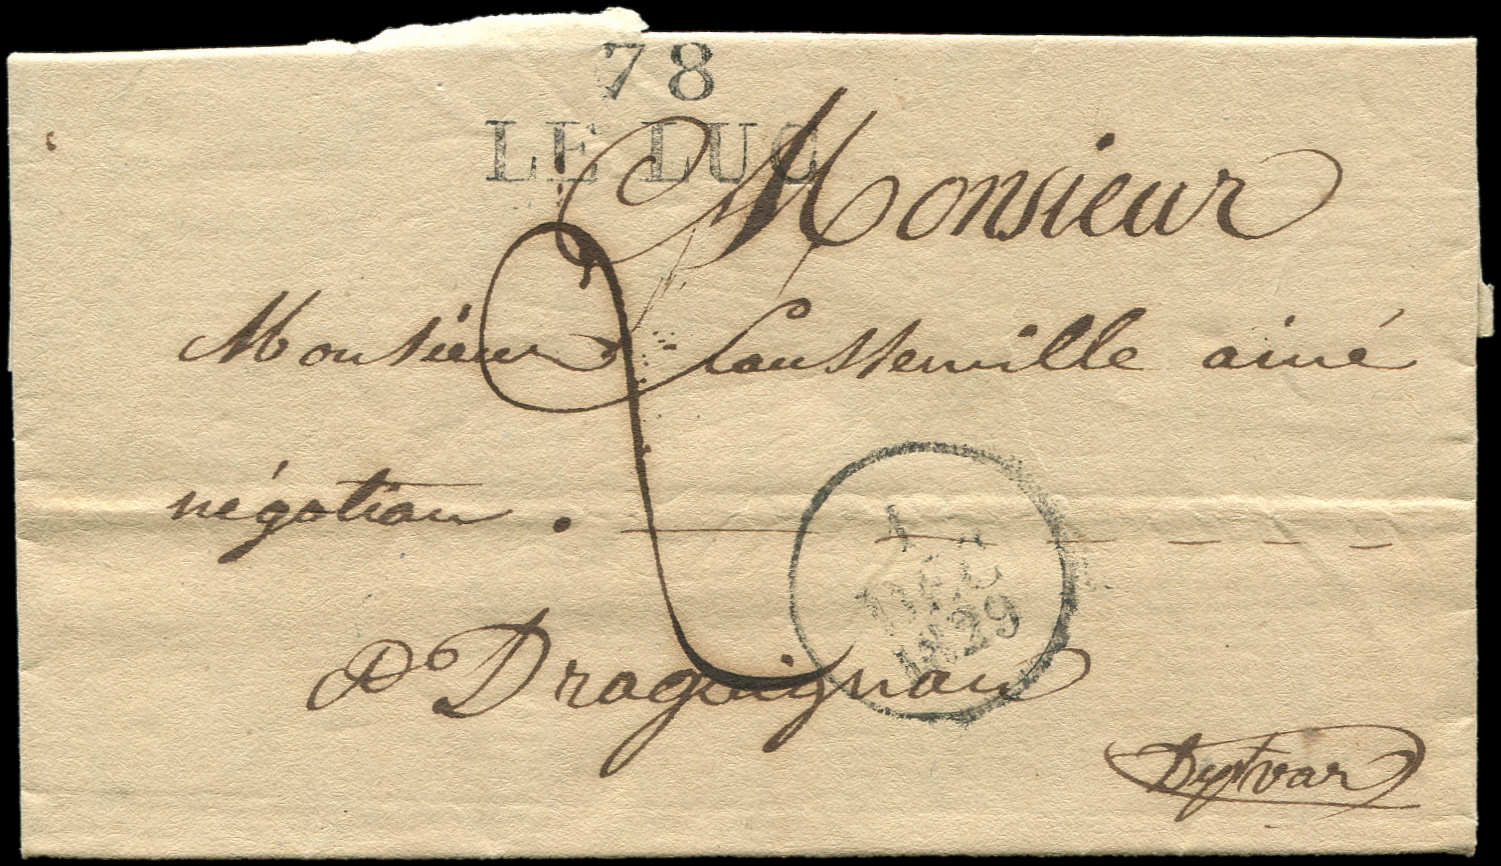 78
LE LUC
Monsieur
Monsieur ainé
négotian .
2
1
DEC
1829
a Draguignan
Dpt var